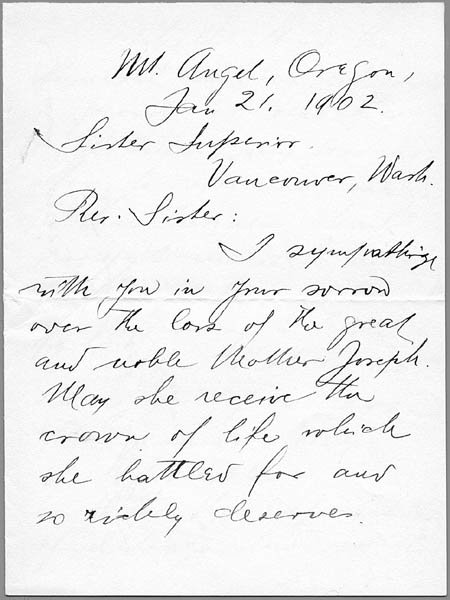 Mt. Angel, Oregon,
Jan 21. 1902.
Sister Superior.
Vancouver, Wash.
Rev. Sister:
I sympathize
with you in your sorrow
over the loss of the great
and noble Mother Joseph.
May she receive the
crown of life which
she battled for and
so richly deserves.